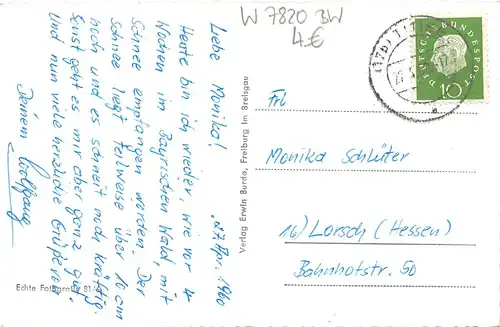 W 7820 BW
4.€
27. Apr. 1960
Liebe Monika!
Heute bin ich wieder, wie vor 4
Wochen im Bayrischen Wald, mit
Schnee empfangen worden. Der
Schnee liegt teilweise über 10 cm
hoch und es schneit noch kräftig.
Sonst geht es mir aber ganz gut
und nun viele herzliche Grüße von
Deinem Wolfgang
Echte Fotografie 81/6
Verlag Erwin Burda, Freiburg im Breisgau
DEUTSCHE BUNDESPOST
10
Frl
Monika Schlüter
16) Lorsch (Hessen)
Bahnhofstr. 50